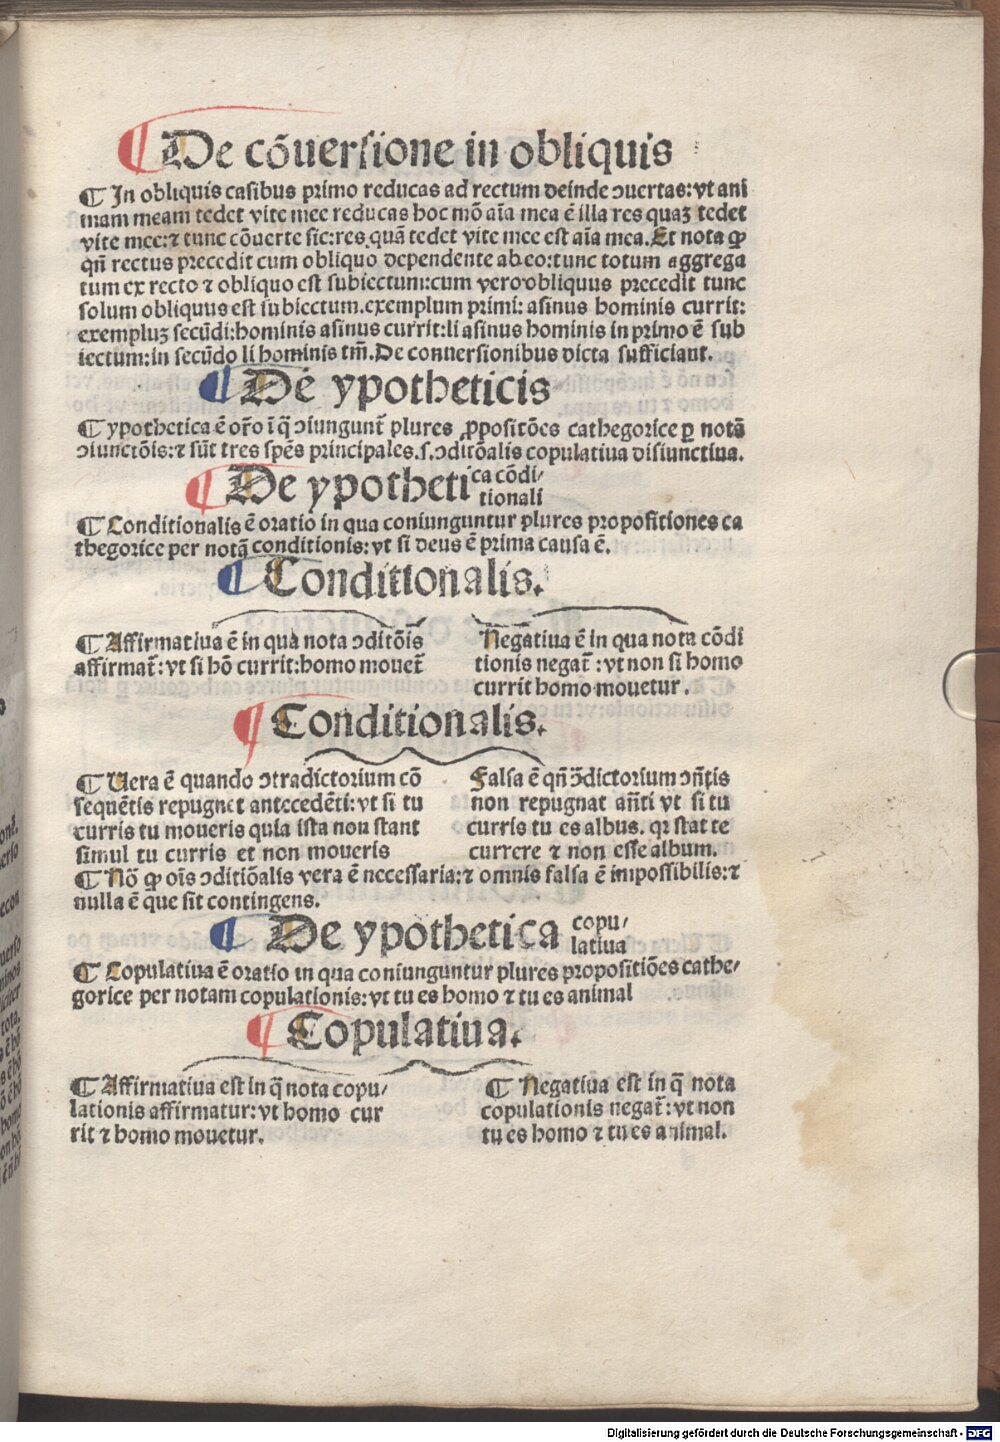 ¶ De cōuersione in obliquis
¶ In obliquis casibus primo reducas ad rectum deinde ↄuertas: vt ani
mam meam tedet vite mee reducas hoc mō aīa mea ē illa res quaꝫ tedet
vite mee: ⁊ tunc cōuerte sic: res quā tedet vite mee est aīa mea. Et nota ꝙ
qn̄ rectus precedit cum obliquo dependente ab eo: tunc totum aggrega
tum ex recto ⁊ obliquo est subiectum: cum vero obliquus precedit tunc
solum obliquus est subiectum. exemplum primi: asinus hominis currit:
exempluꝫ secūdi: hominis asinus currit: li asinus hominis in primo ē sub
iectum: in secūdo li hominis tm̄. De conuersionibus dicta sufficiant.
¶ De ypotheticis
¶ ypothetica ē or̄o ī q̄ ↄiungunt̄ plures ꝓpositōes cathegorice ꝑ notā
ↄiunctōis: ⁊ sūt tres spēs principales. s. ↄditōalis copulatiua disiunctiua.
¶ De ypotheti ca cōdi/
tionali
¶ Conditionalis ē oratio in qua coniunguntur plures propositiones ca
thegorice per notā conditionis: vt si deus ē prima causa ē.
¶ Conditionalis.
¶ Affirmatiua ē in qua nota ↄditōis
affirmat̄: vt si hō currit: homo mouet̄
Negatiua ē in qua nota cōdi
tionis negat̄: vt non si homo
currit homo mouetur.
¶ Conditionalis.
¶ Uera ē quando ↄtradictorium cō
sequētis repugnet antecedēti: vt si tu
curris tu moueris quia ista non stant
simul tu curris et non moueris
Falsa ē qn̄ ↄ̄dictorium ↄn̄tis
non repugnat an̄ti vt si tu
curris tu es albus. qꝛ stat te
currere ⁊ non esse album.
¶ Nō ꝙ oīs ↄditiōalis vera ē necessaria: ⁊ omnis falsa ē impossibilis: ⁊
nulla ē que sit contingens.
¶ De ypothetica copu/
latiua
¶ Copulatiua ē oratio in qua coniunguntur plures propositiōes cathe/
gorice per notam copulationis: vt tu es homo ⁊ tu es animal
¶ Copulatiua.
¶ Affirmatiua est in q̄ nota copu/
lationis affirmatur: vt homo cur
rit ⁊ homo mouetur.
¶ Negatiua est in q̄ nota
copulationis negat̄: vt non
tu es homo ⁊ tu es animal.
Digitalisierung gefördert durch die Deutsche Forschungsgemeinschaft - DFG